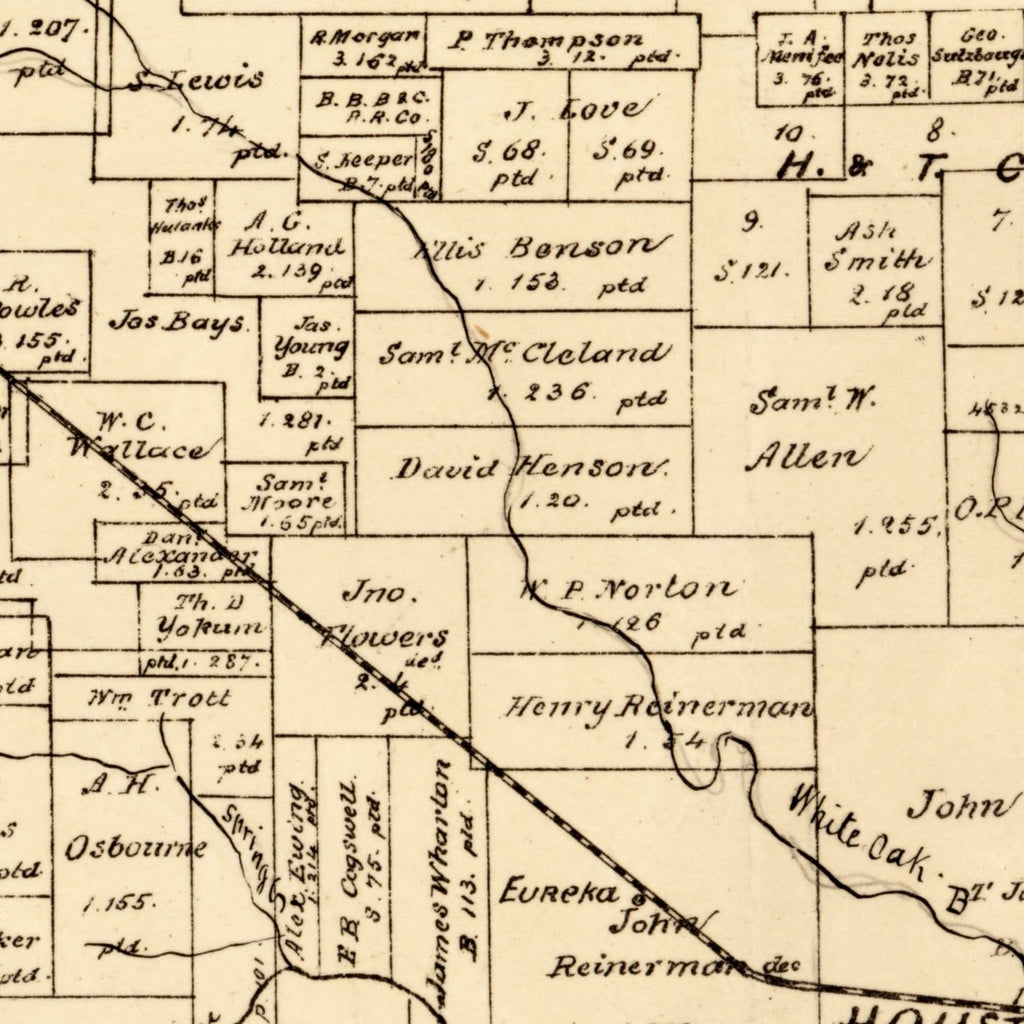 1. 207.
ptd
S. Lewis
1. 74
ptd.
R. Morgan
3. 162 ptd
P. Thompson
3. 12. ptd.
B. B. B & C.
R. R. Co.
S. Keeper
B. 7. ptd
J. Love
S. 68.
ptd.
S. 69.
ptd.
3. 76.
ptd.
Thos
Nolis
3. 72.
ptd.
Geo.
B 71
ptd
10.
8.
H. & T. C
Thos
B 16
ptd
A. G.
Holland
2. 139.
ptd
Ellis Benson
1. 153. ptd
9.
S. 121.
Ash
Smith
2. 18
ptd
7.
S. 12
R.
owles
155.
ptd.
Jos. Bays.
Jas.
Young
B. 2.
ptd
Saml. Mc Cleland
1. 236. ptd
1. 281.
ptd
W. C.
Wallace
ptd
Saml.
Moore
1. 65 ptd.
David Henson.
1. 20. ptd.
Saml. W.
Allen
1. 955.
ptd.
Danl.
Alexander
1. 63. ptd.
Th. D
Yokum
ptd. 1. 287.
Jno.
Flowers
decd
2. 4
ptd.
W. P. Norton
1. 126 ptd
Wm Trott
ptd
Henry Reinerman
1. 54
A. H.
Osbourne
1. 155.
ptd.
Spring
Alex. Ewing.
1. 214 ptd.
F B Cogswell
S. 75. ptd.
James Wharton
B. 113. ptd.
White Oak.
Bt.
John
Eureka
John
Reinerman dec
ker
HOUST